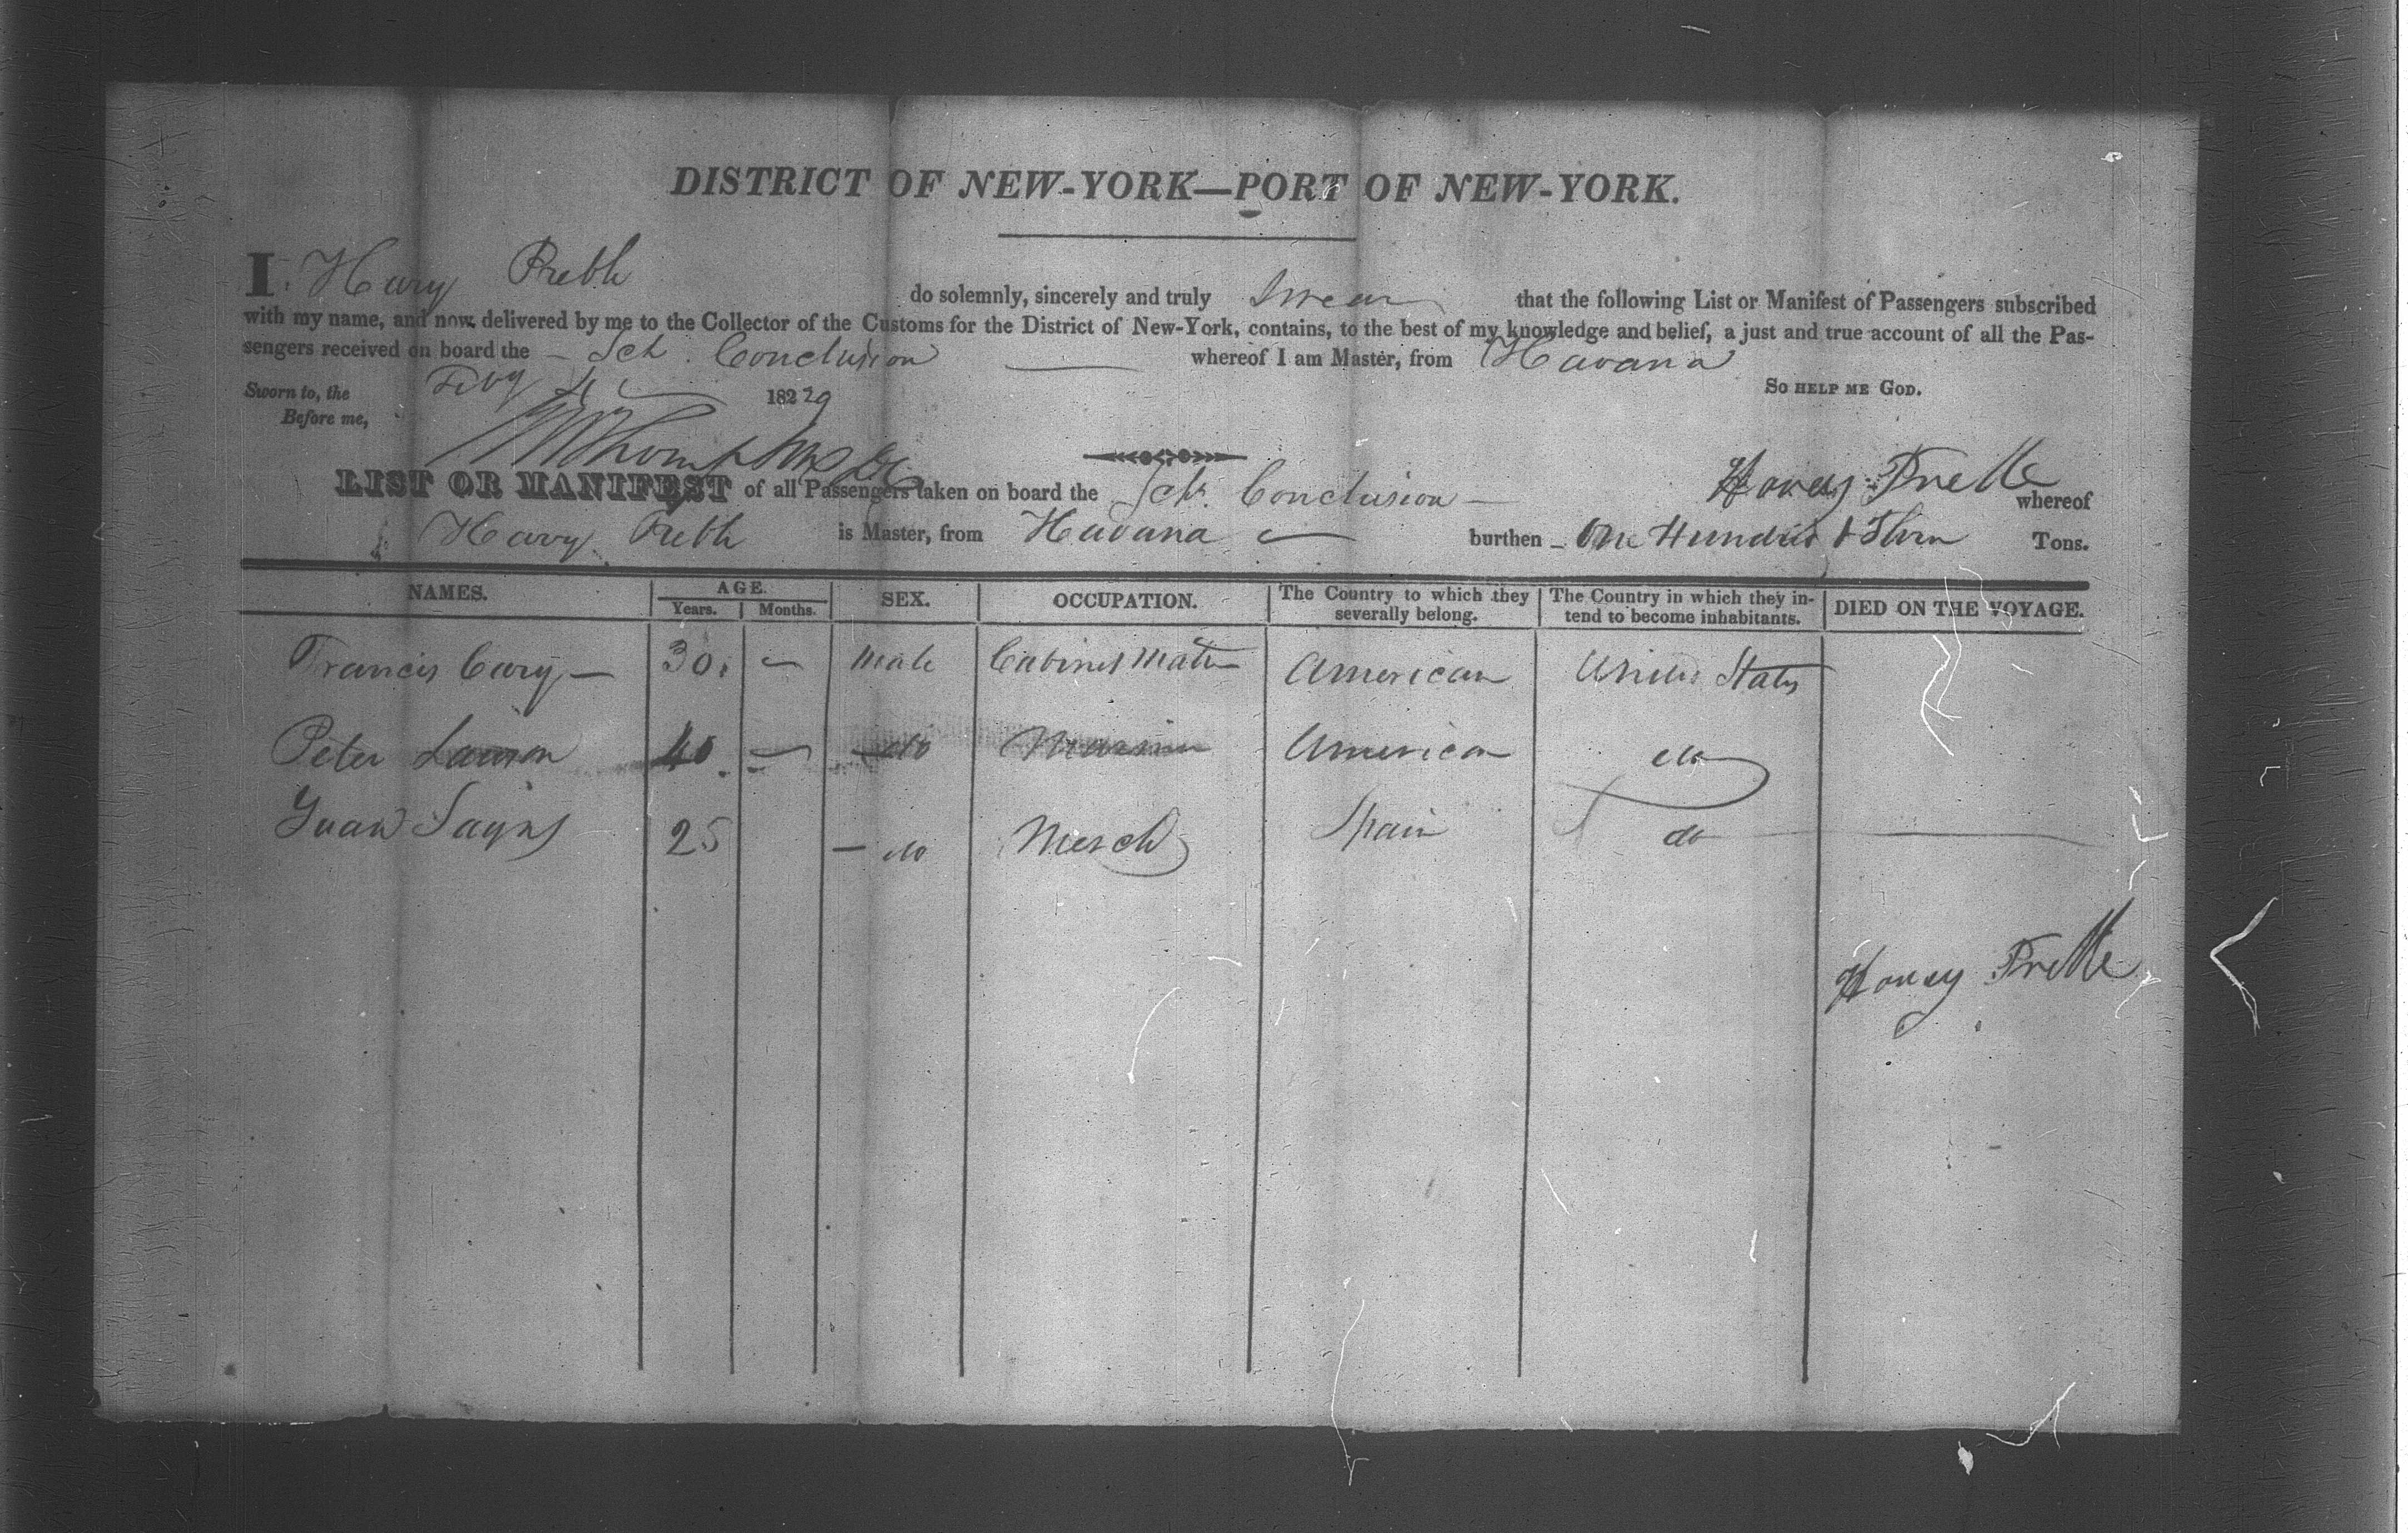 DISTRICT OF NEW-YORK—PORT OF NEW-YORK.
I. Harvy Preble do solemnly, sincerely and truly Swear that the following List or Manifest of Passengers subscribed
with my name, and now delivered by me to the Collector of the Customs for the District of New-York, contains, to the best of my knowledge and belief, a just and true account of all the Pas-
sengers received on board the – Sch. Conclusion whereof I am Master, from Havana
Sworn to, the Feby 1829 So HELP ME GOD.
Before me,
Thompson
LIST OR MANIFEST of all Passengers taken on board the Schr Conclusion – whereof
Harvy Preble is Master, from Havana — burthen – One Hundred & Tons.
NAMES. AGE. SEX. OCCUPATION. The Country to which they severally belong. The Country in which they in-tend to become inhabitants. DIED ON THE VOYAGE.
Years. Months.
Francis Cary – 30. – Male Cabinet Maker American United States
Peter Lawson 40 – do Mariner American do
Juan Sayns 25 – do Merch Spain do